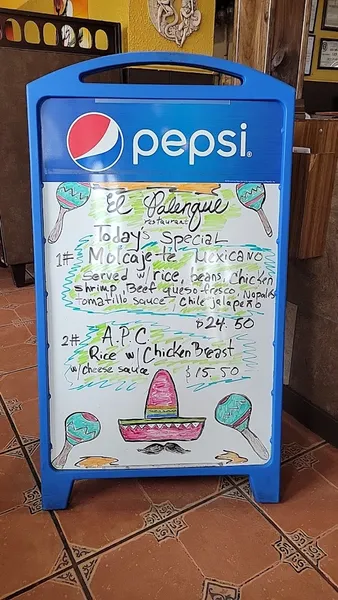 pepsi
El Palenque
restaurant
Today's Special
1# Molcaje-te Mexicano
Served w/rice, beans, Chicken
shrimp, Beef queso fresco, Nopales
tomatillo sauce / Chile jalapeño
$24.50
2# A.P.C.
Rice w/ Chicken Breast
w/cheese sauce $15.50